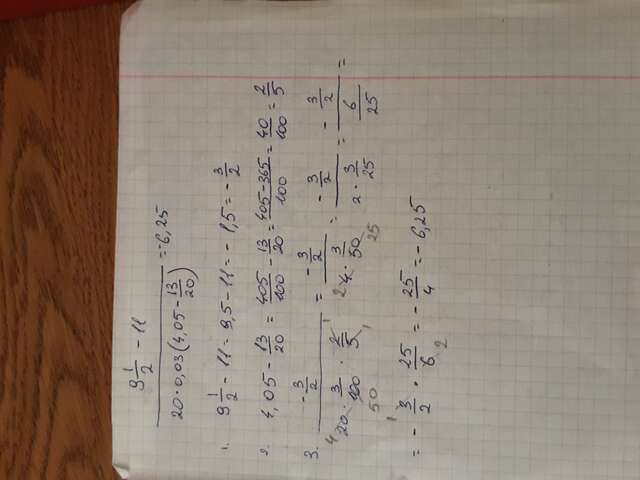 \frac{9\frac{1}{2} - 11}{20 \cdot 0,03(4,05 - \frac{13}{20})} = -6,25
1. 9\frac{1}{2} - 11 = 9,5 - 11 = -1,5 = -\frac{3}{2}
2. 4,05 - \frac{13}{20} = \frac{405}{100} - \frac{13}{20} = \frac{405-365}{100} = \frac{40}{100} = \frac{2}{5}
3. \frac{-\frac{3}{2}}{20 \cdot \frac{3}{100} \cdot \frac{2}{5}} = \frac{-\frac{3}{2}}{4 \cdot \frac{3}{50}} = \frac{-\frac{3}{2}}{2 \cdot \frac{3}{25}} = \frac{-\frac{3}{2}}{\frac{6}{25}} =
= -\frac{3}{2} \cdot \frac{25}{6} = -\frac{25}{4} = -6,25